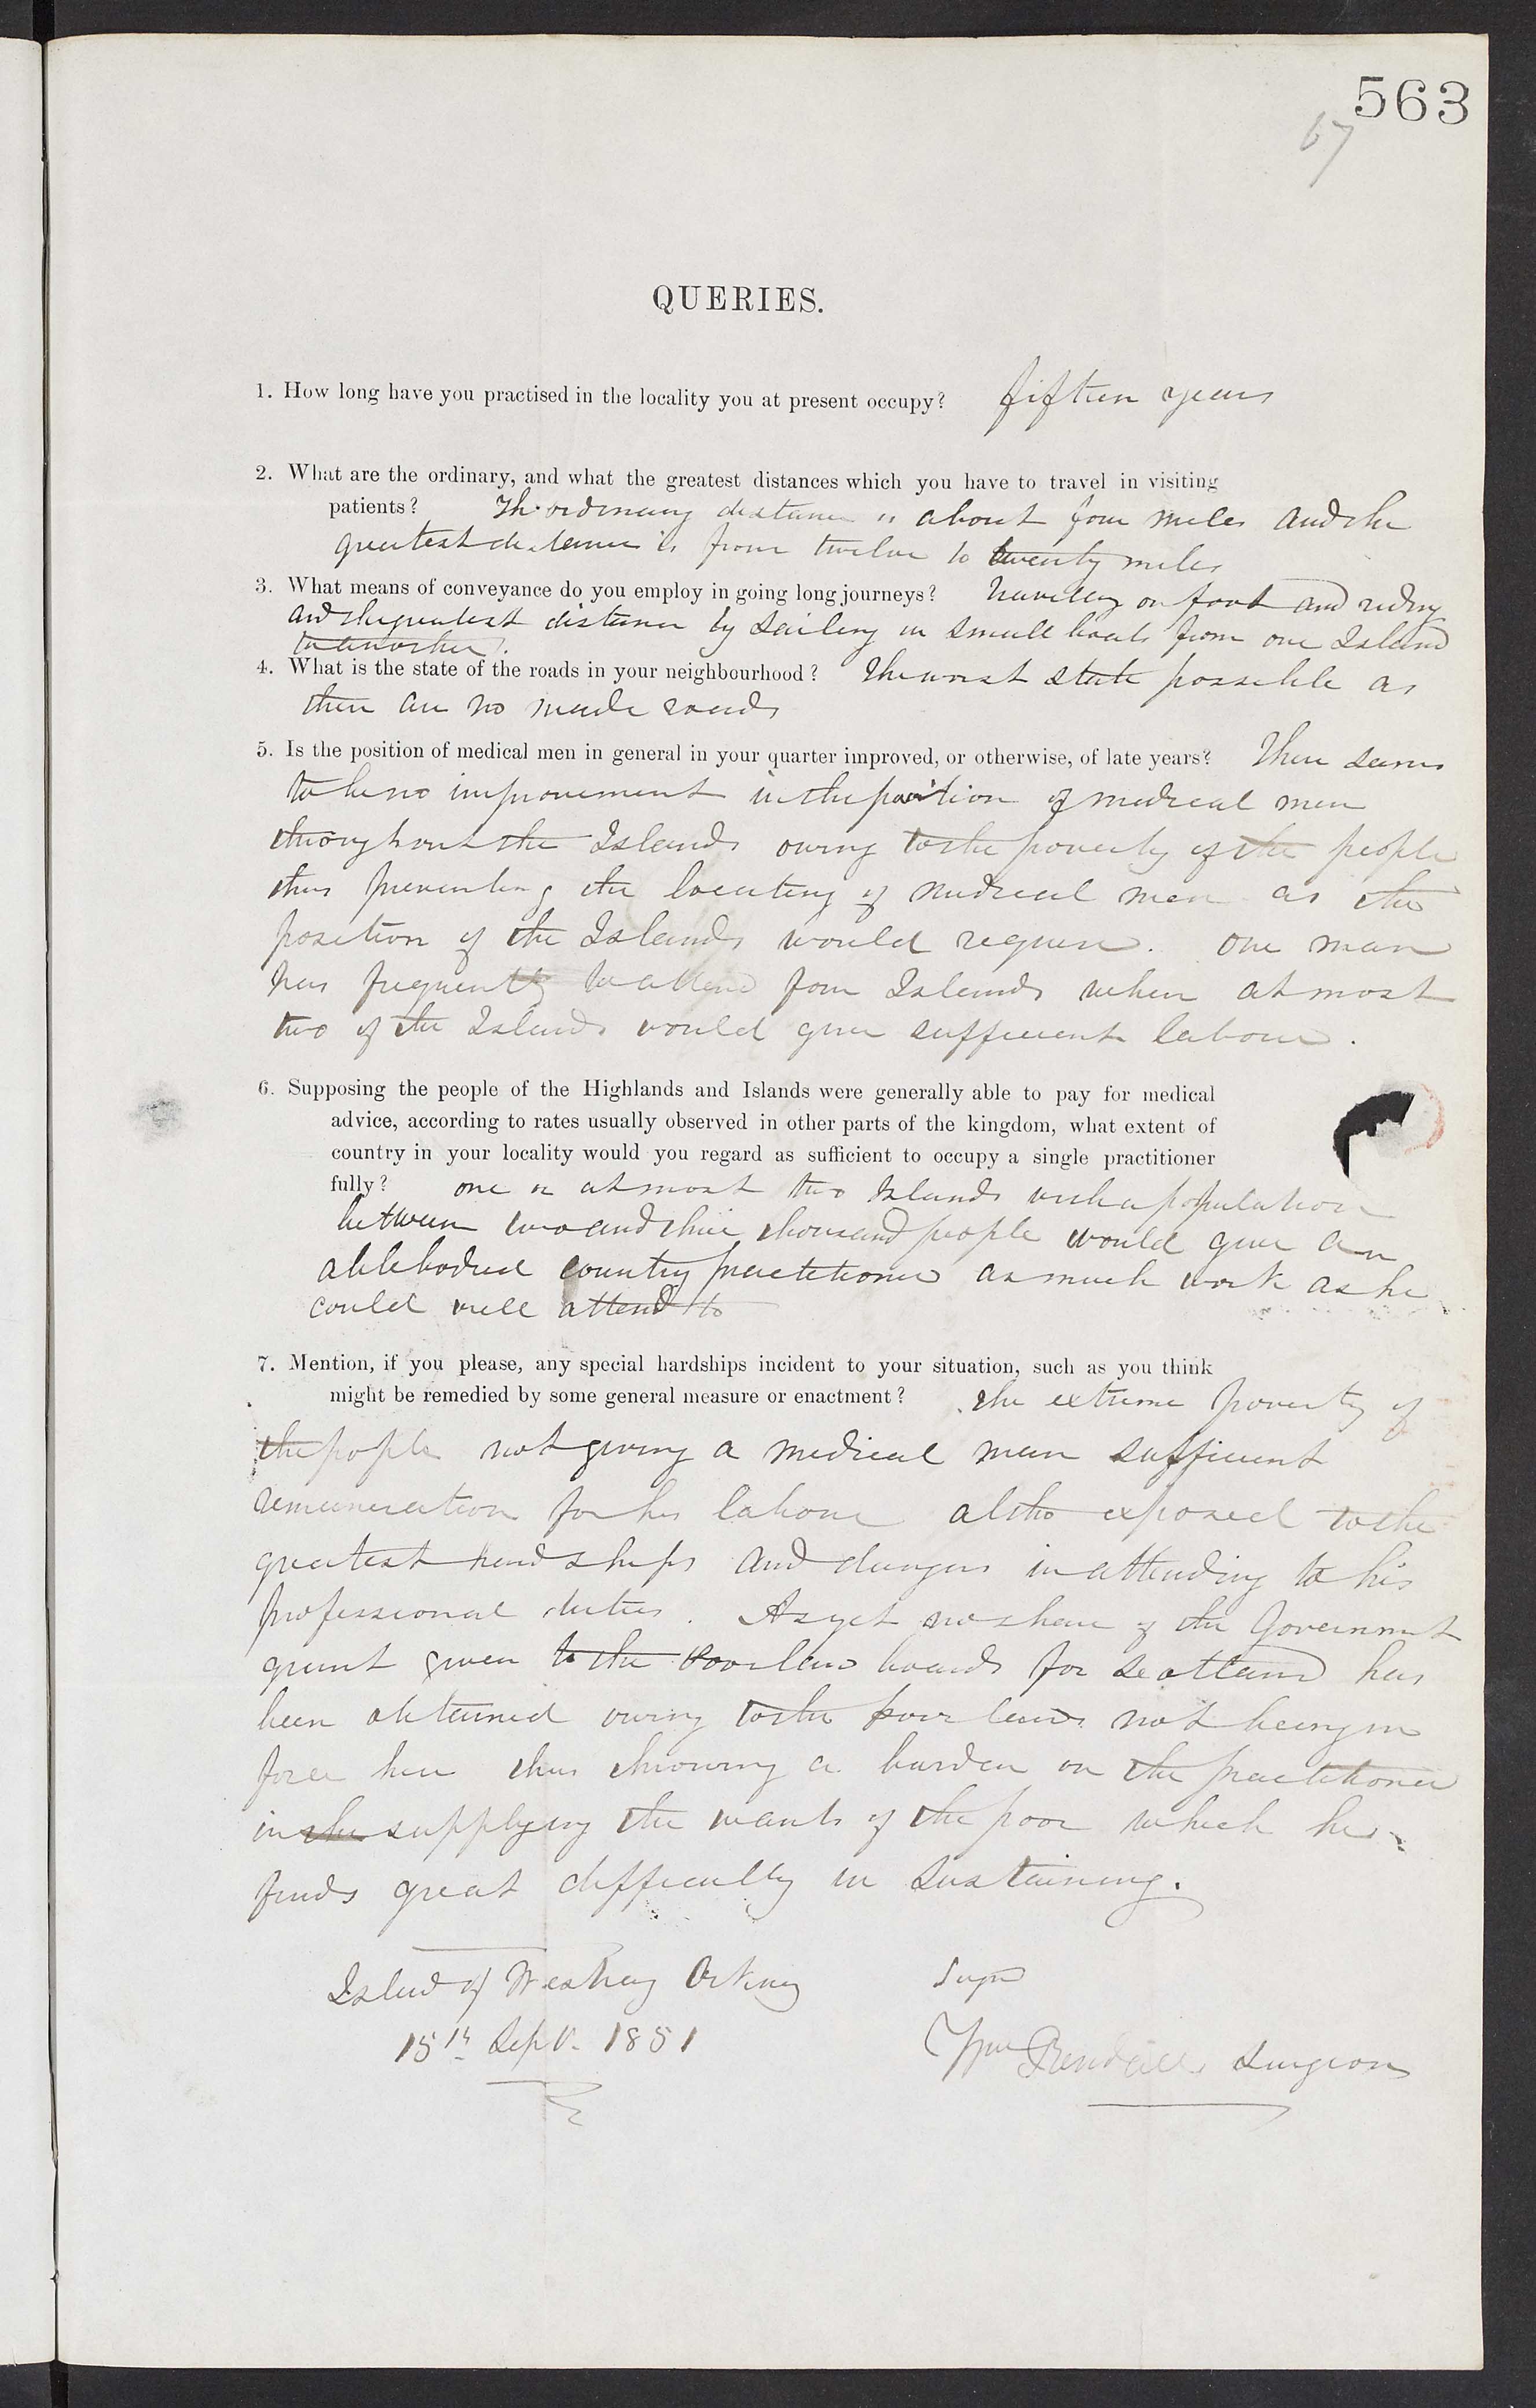 563
67
QUERIES.
1. How long have you practised in the locality you at present occupy? fifteen years
2. What are the ordinary, and what the greatest distances which you have to travel in visiting
patients? The ordinary distance is about four miles and the
greatest distance is from twelve to twenty miles
3. What means of conveyance do you employ in going long journeys? Travelling on foot and riding
and the greatest distance by sailing in small boats from one Island
to another.
4. What is the state of the roads in your neighbourhood? The worst state possible as
there are no made roads
5. Is the position of medical men in general in your quarter improved, or otherwise, of late years? There seems
to be no improvement in the position of medical men
throughout the Islands owing to the poverty of the people
thus preventing the locating of medical men as the
position of the Islands would require. one man
has frequently to attend four Islands when at most
two of the Islands would give sufficient labour.
6. Supposing the people of the Highlands and Islands were generally able to pay for medical
advice, according to rates usually observed in other parts of the kingdom, what extent of
country in your locality would you regard as sufficient to occupy a single practitioner
fully? one or at most two Islands with a population
between two and three thousand people would give an
ablebodied country practitioner as much work as he
could well attend to
7. Mention, if you please, any special hardships incident to your situation, such as you think
might be remedied by some general measure or enactment? the extreme poverty of
the people not giving a medical man sufficient
remuneration for his labour altho exposed to the
greatest hardships and dangers in attending to his
professional duties. As yet no share of the Government
grant given to the Poor law boards for Scotland has
been obtained owing to the poor laws not being in
force here thus throwing a burden on the practitioner
in the supplying the wants of the poor which he
finds great difficulty in sustaining.
Island of Westray Orkney
Signed
15th Sept. 1851
Wm Rendall Surgeon